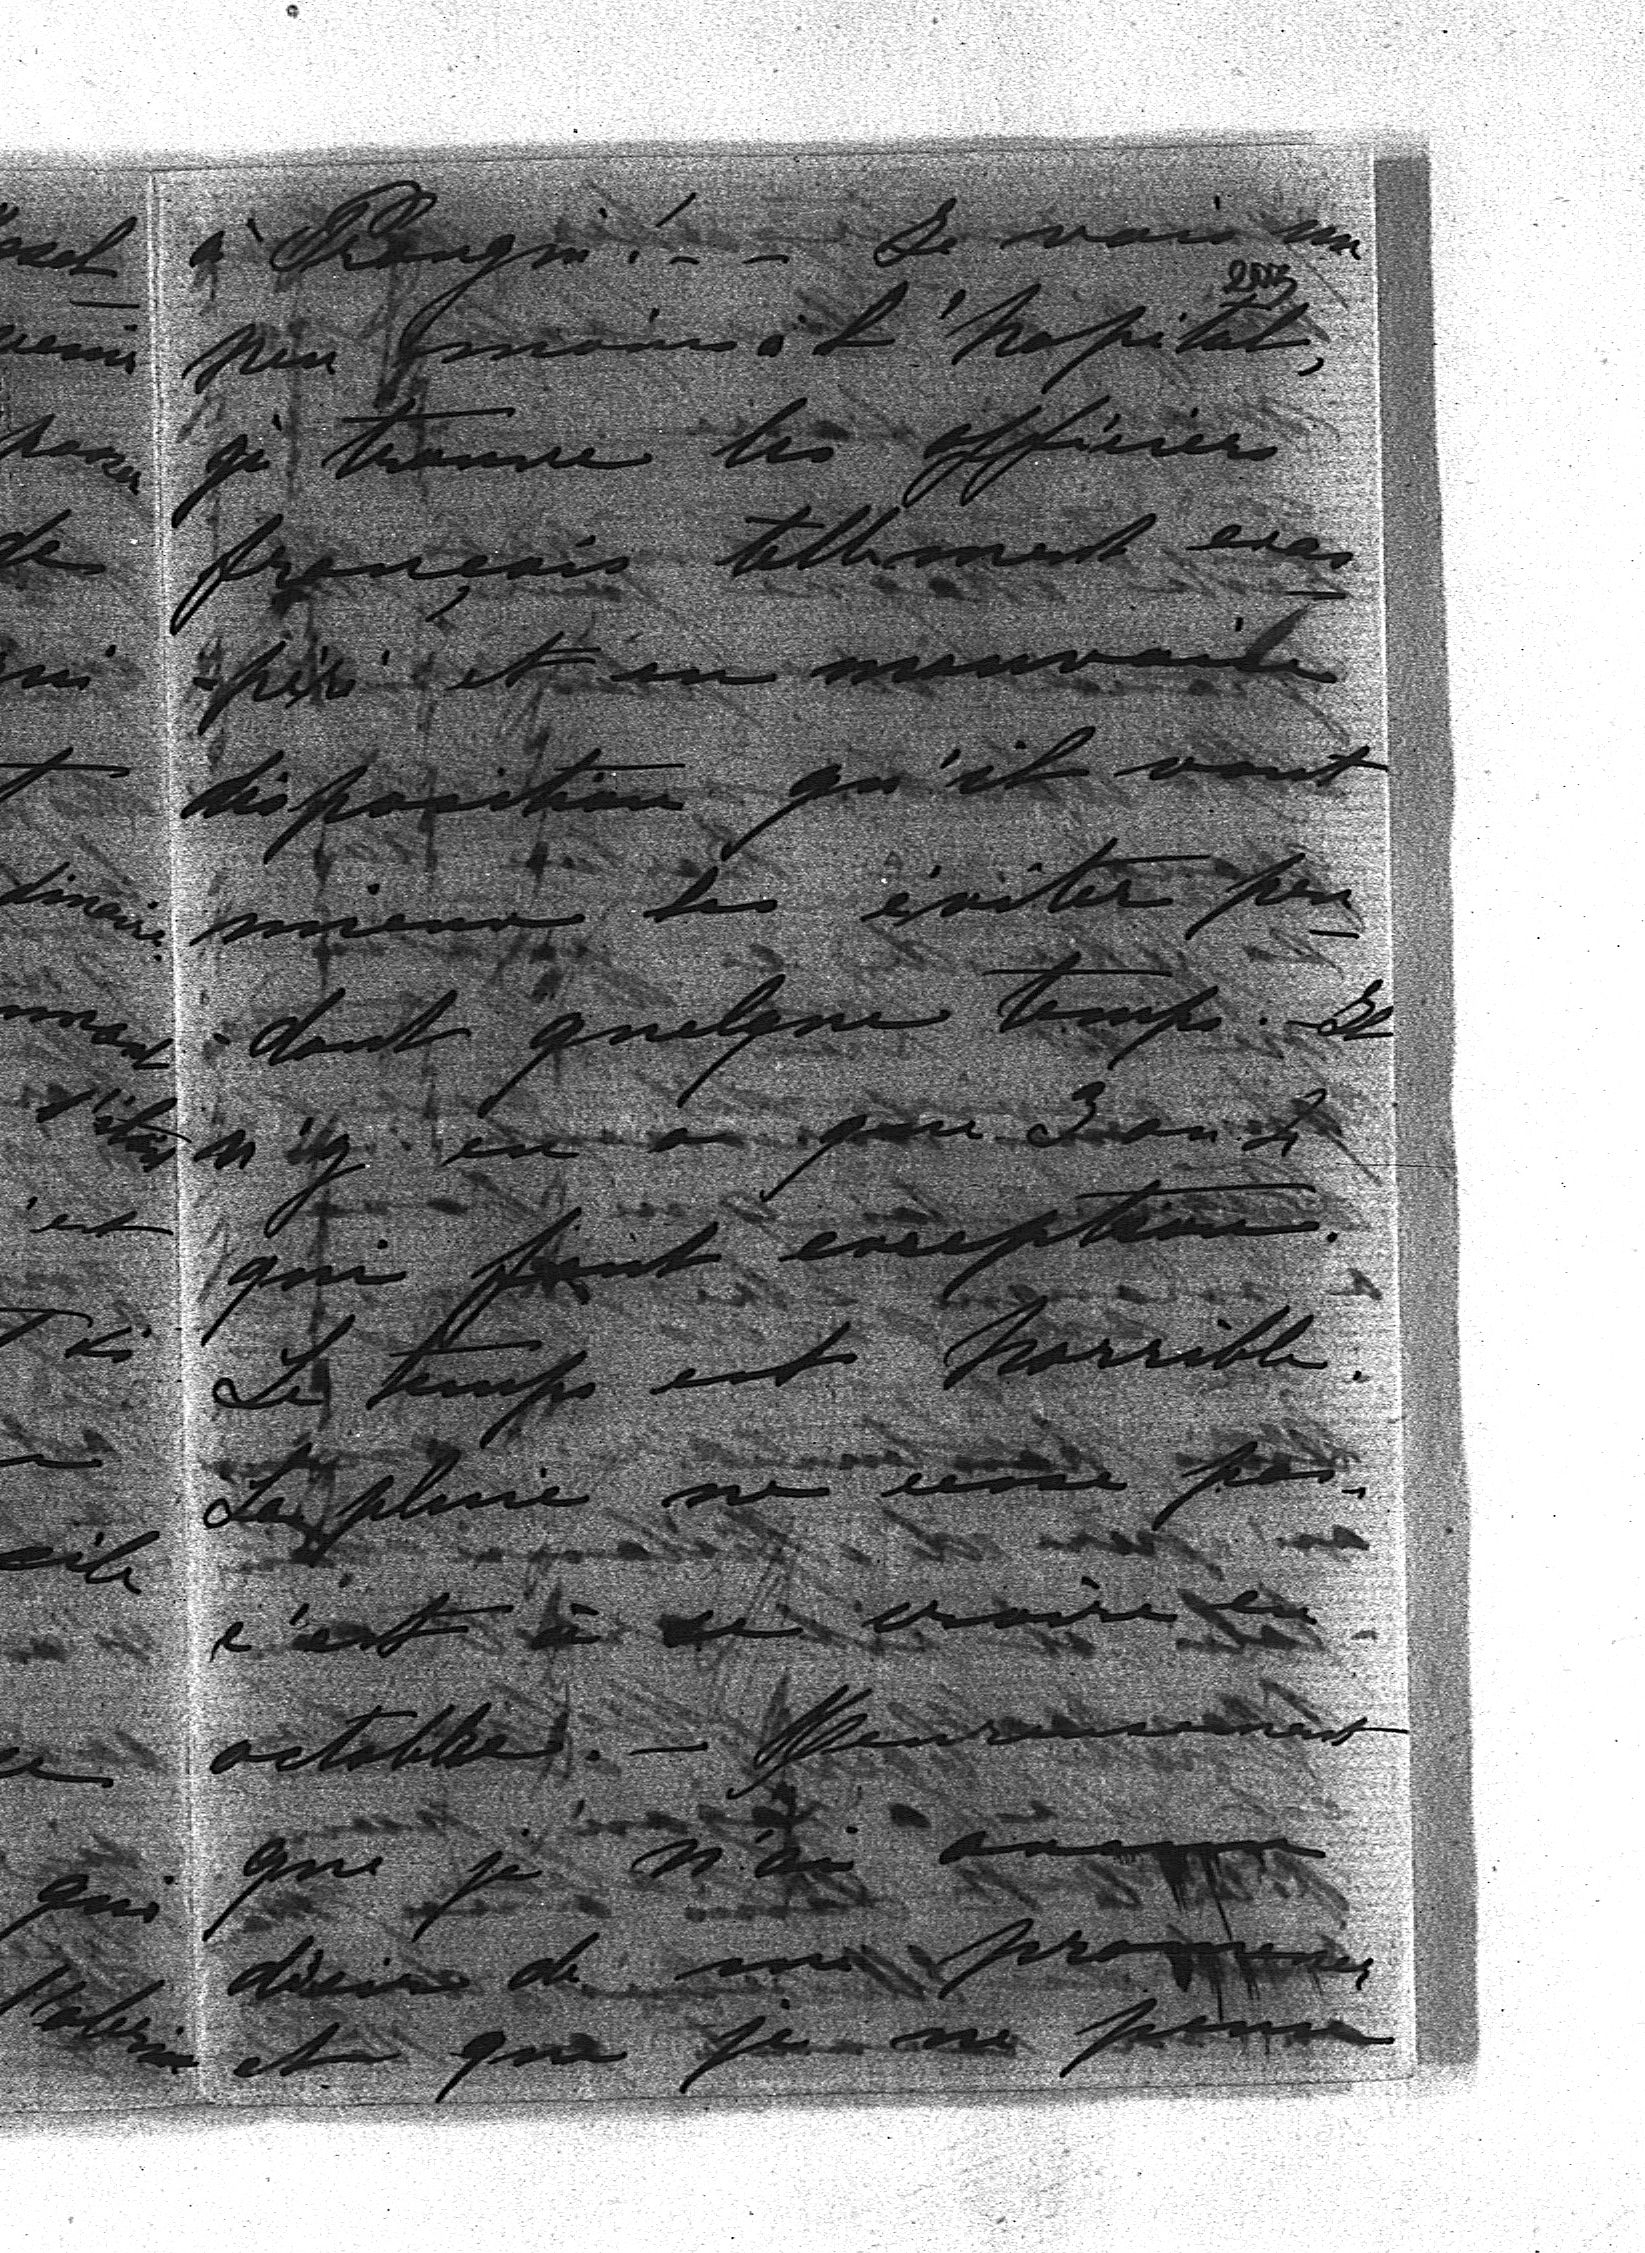 à Prangin! - - Je vais un
peu moins à l'hopital,
je trouve les officiers
français tellement exas
-péré et en mauvaise
disposition qu'il vaut
mieux les éviter pen
-dant quelque temps. - Il
n'y en a que 3 ou 4
qui font exception.
Le temps est horrible.
La pluie ne cesse pas,
c'est à se croire en
octobre. - Heureusement
que je n'ai aucune
désire de me promener
et que je ne pense